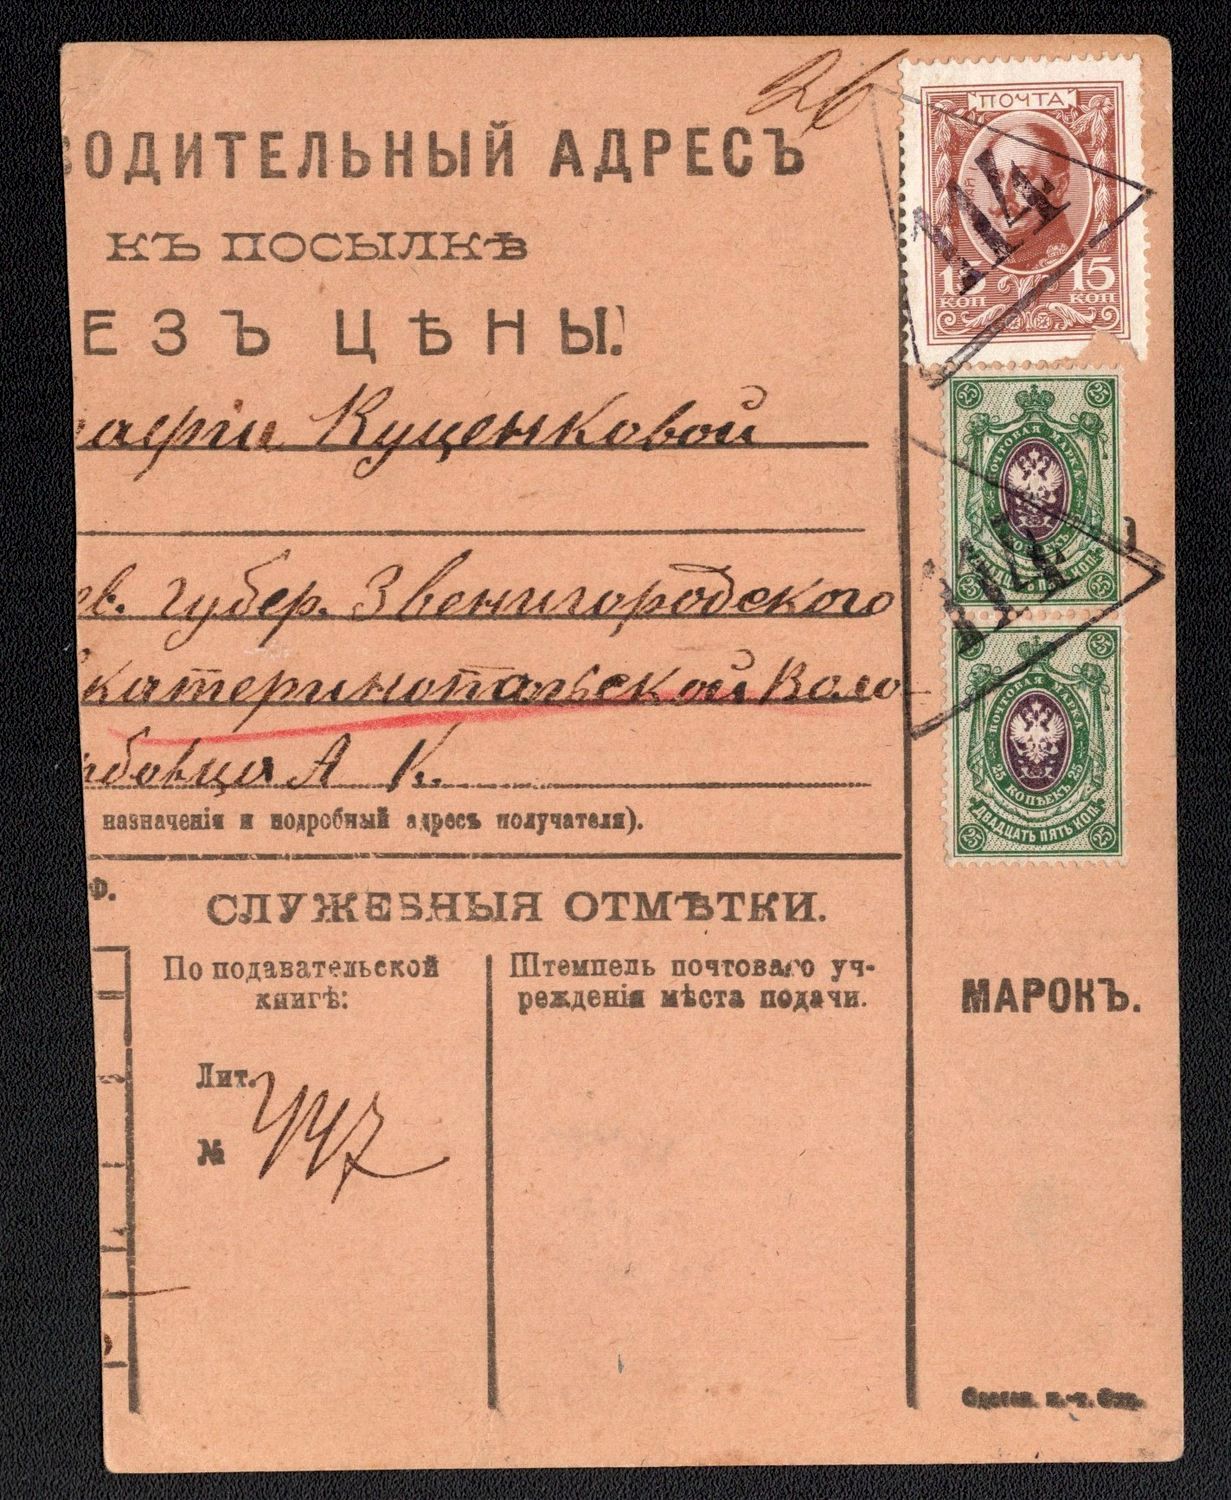 26
ОДИТЕЛЬНЫЙ АДРЕСЪ
КЪ ПОСЫЛКѢ
ЕЗЪ ЦѢНЫ.
Куценковой
ев. губер. Звенигородского
катеринопольской Воло-
А К.
назначенія и подробный адресъ получателя).
Ф.
СЛУЖЕБНЫЯ ОТМѢТКИ.
По подавательской
книгѣ:
Лит.
№ 447
Штемпель почтоваго уч-
режденія мѣста подачи.
ПОЧТА
15 15
КОП КОП
114
25 25
ПОЧТОВАЯ МАРКА
ДВАДЦАТЬ ПЯТЬ КОП.
25 25
114
25
ПОЧТОВАЯ МАРКА
25 25
КОПѢЕКЪ
ДВАДЦАТЬ ПЯТЬ КОП.
25 25
МАРОКЪ.
Одесск. п.-т. Окр.